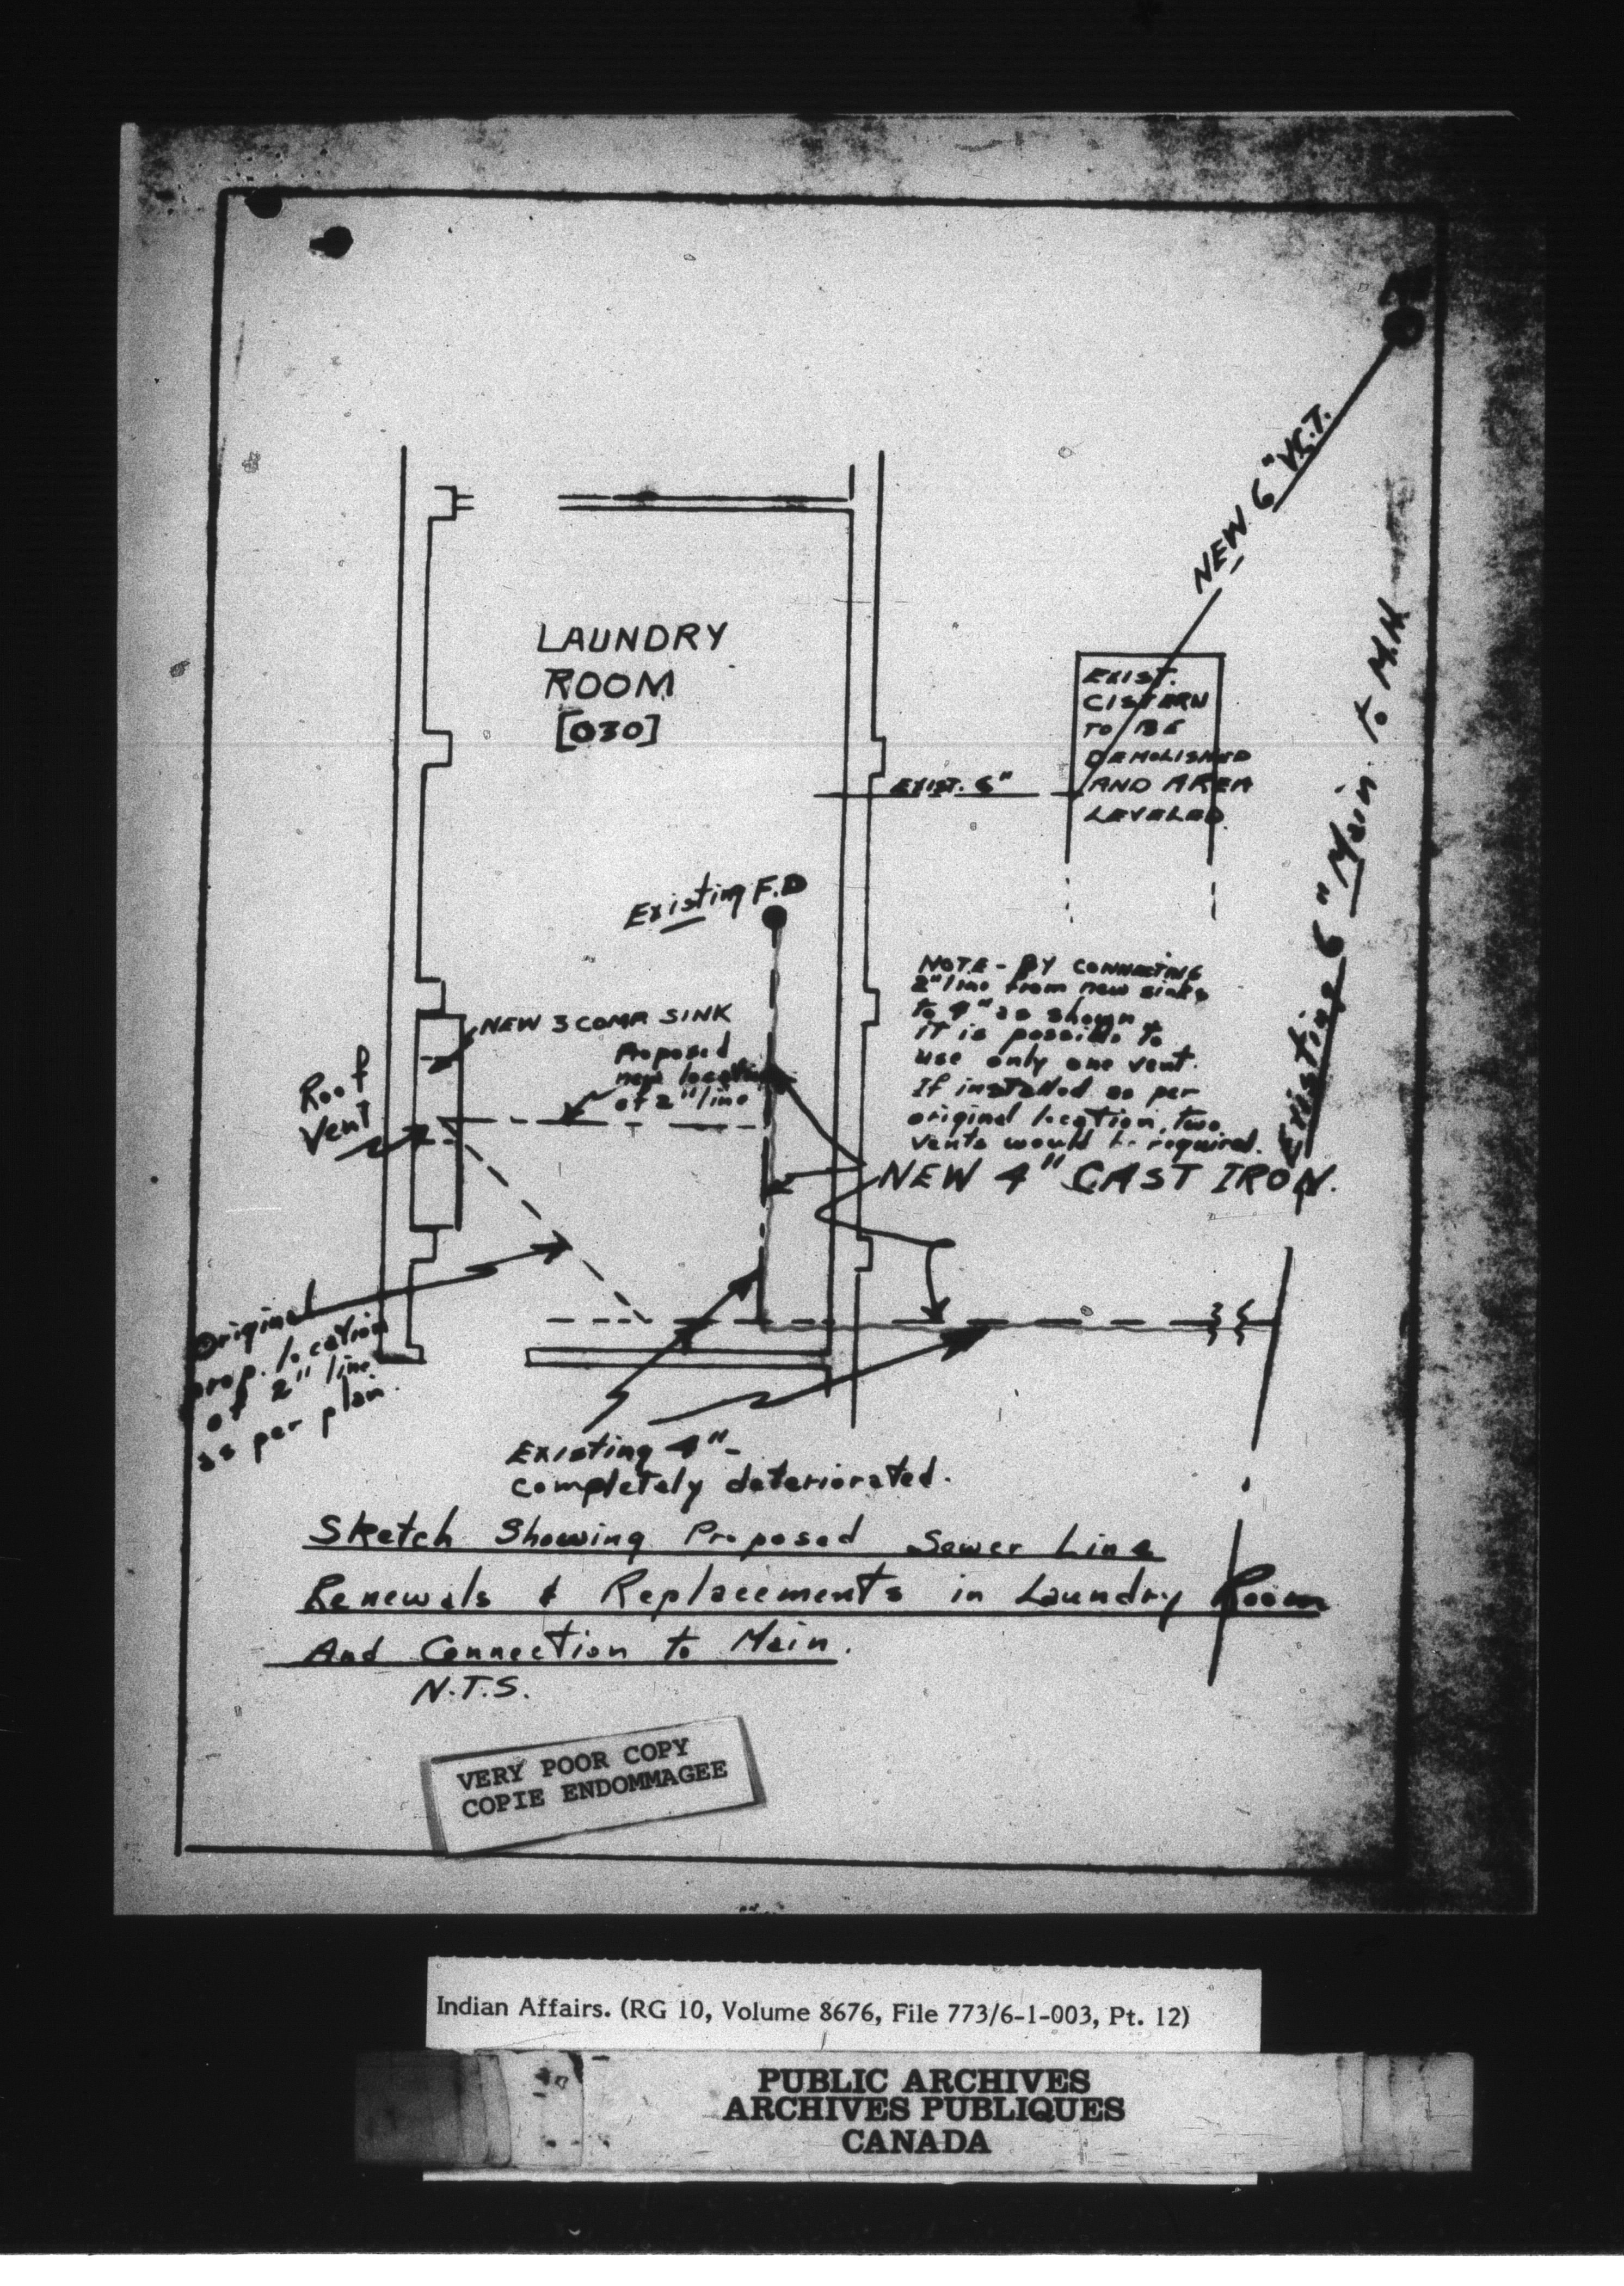 M.H.
NEW 6" V.C.T.
LAUNDRY
ROOM
[030]
EXIST.
CISTERN
TO BE
DEMOLISHED
AND AREA
LEVELED.
EXIST. 6"
Existing 6" Main to M.H.
Existing F.D
NOTE - BY CONNECTING
2" line from new sinks
to 4" as shown
it is possible to
use only one vent.
If installed as per
original location, two
vents would be required.
NEW 3 COMP SINK
Proposed
new location
of 2" line
Roof
Vent
NEW 4" CAST IRON.
Original
prop. location
of 2" line
as per plan.
Existing 4" -
completely deteriorated.
Sketch Showing Proposed Sewer Line
Renewals & Replacements in Laundry Room
And Connection to Main.
N.T.S.
VERY POOR COPY
COPIE ENDOMMAGEE
Indian Affairs. (RG 10, Volume 8676, File 773/6-1-003, Pt. 12)
PUBLIC ARCHIVES
ARCHIVES PUBLIQUES
CANADA